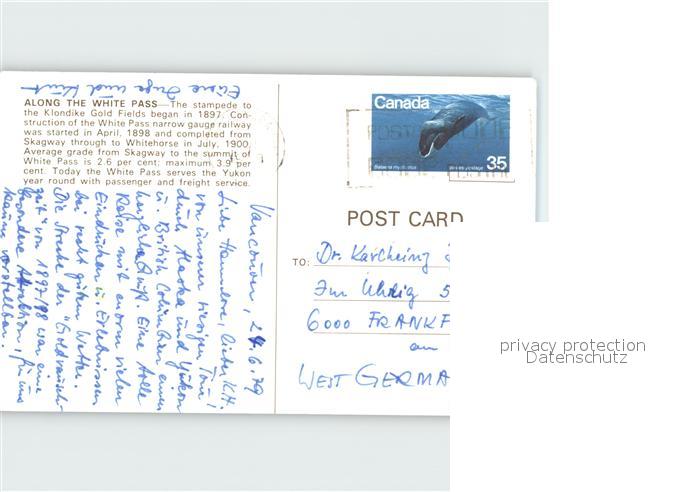 ALONG THE WHITE PASS—The stampede to
the Klondike Gold Fields began in 1897. Con-
struction of the White Pass narrow gauge railway
was started in April, 1898 and completed from
Skagway through to Whitehorse in July, 1900.
Average grade from Skagway to the summit of
White Pass is 2.6 per cent; maximum 3.9 per
cent. Today the White Pass serves the Yukon
year round with passenger and freight service.
Vancouver, 24.6.79
Liebe Hannelore, lieber K.H.
von unserer riesigen Tour
durch Alaska und Yukon
u. British Columbien einen
herzlichen Gruß. Eine tolle
Reise mit enorm vielen
Eindrücken u. Erlebnissen
bei recht gutem Wetter.
Die Strecke der "Goldrausch-
zeit" von 1897/98 war eine
besondere Attraktion, für uns
kaum vorstellbar.
Eure Inge und Kurt
Canada
35
POST CARD
TO: Dr. Karlheinz
Im Uhrig 5
6000 FRANKF
am
WEST GERMA
privacy protection
Datenschutz